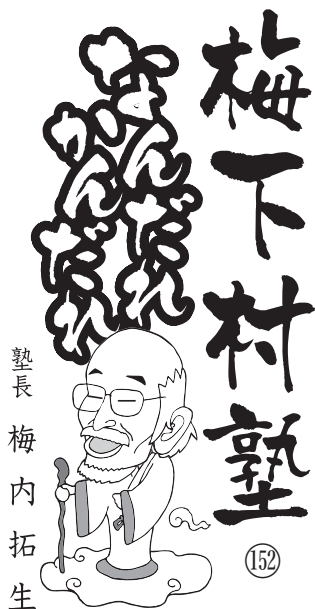 梅下村塾
152
なんだれ
かんだれ
塾長 梅内拓生